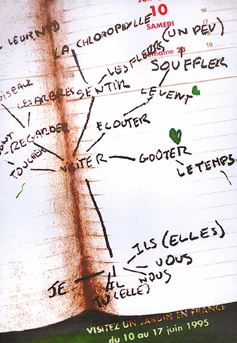 10
SAMEDI
LEUR NID
LA CHLOROPHYLLE
LES FLEURS
(UN PEU)
SOUFFLER
OISEAUX
LES ARBRES
SENTIR
LE VENT
ECOUTER
REGARDER
TOUCHER
VISITER
GOÛTER
LE TEMPS
ILS (ELLES)
VOUS
NOUS
JE
IL
TU (ELLE)
VISITEZ UN JARDIN EN FRANCE
du 10 au 17 juin 1995